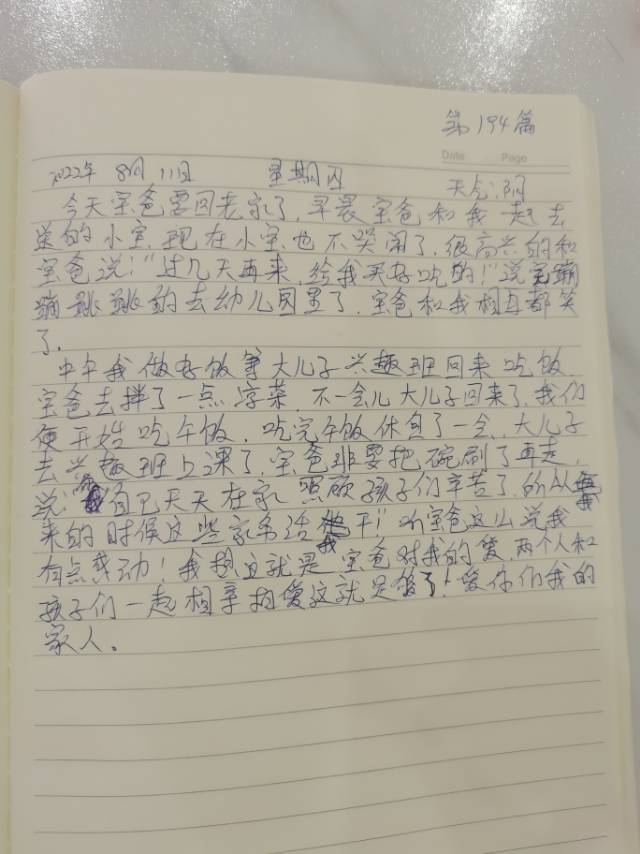 第194篇
Date Page
2022年 8月11日 星期四 天气:阴
今天宝爸要回老家了，早晨宝爸和我一起去
送的小宝，现在小宝也不哭闹了，很高兴的和
宝爸说:“过几天再来，给我买好吃的!”说完蹦
蹦跳跳的去幼儿园里了，宝爸和我相互都笑
了.
中午我做好饭等大儿子兴趣班回来吃饭，
宝爸去拌了一点凉菜，不一会儿大儿子回来了，我们
便开始吃午饭，吃完午饭休息了一会，大儿子
去兴趣班上课了，宝爸非要把碗刷了再走，
说:“你自己天天在家照顾孩子们辛苦了，所以我
来的时候这些家务活我干!”听宝爸这么说我
有点感动!我想这就是宝爸对我的爱，两个人和
孩子们一起相亲相爱这就足够了!爱你们我的
家人。